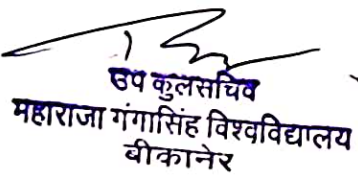 उप कुलसचिव
महाराजा गंगासिंह विश्वविद्यालय
बीकानेर